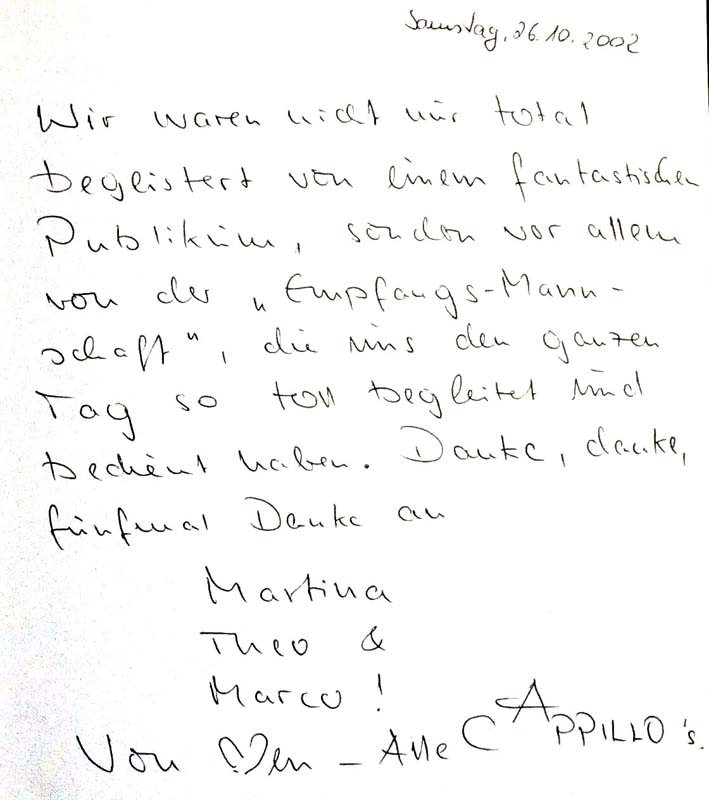 Samstag, 26.10.2002
Wir waren nicht nur total
begeistert von einem fantastischen
Publikum, sondern vor allem
von der „Empfangs-Mann-
schaft", die uns den ganzen
Tag so toll begleitet und
bedient haben. Danke, danke,
fünfmal Danke an
Martina
Theo &
Marco!
Von ♡en – Alle CAPPILLO's